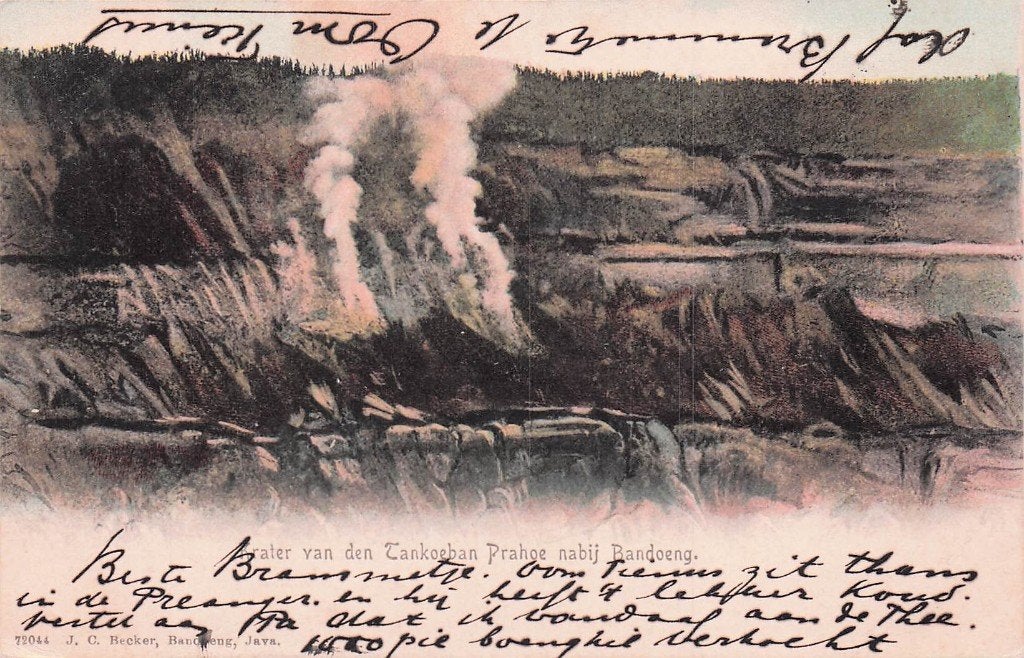 dag Brammetje je Oom Tienus
Krater van den Tankoeban Prahoe nabij Bandoeng.
Beste Brammetje. Oom Tienus zit thans
in de Preanger. en hij heeft 't lekker Koud.
vertel aan Pa dat ik vandaag aan de Thee.
72044 J. C. Becker, Bandoeng, Java.
1000 pic boengkil verkocht